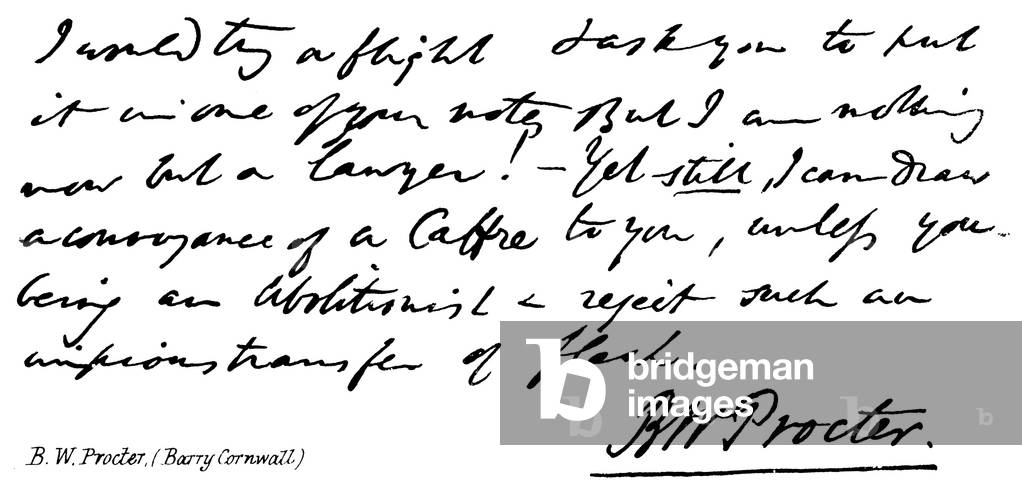 I would try a flight & ask you to put
it in one of your notes But I am nothing
now but a lawyer! – Yet still, I can draw
a conveyance of a Caffre to you, unless you
being an Abolitionist & reject such an
impious transfer of flesh.
BW Procter.
B. W. Procter, (Barry Cornwall)
b bridgeman
images
b
b
b